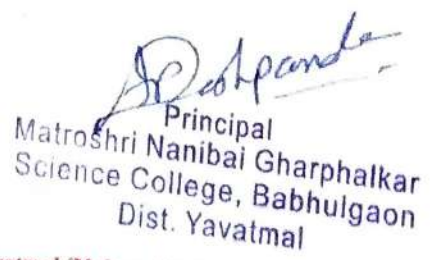 Deshpande
Principal
Matroshri Nanibai Gharphalkar
Science College, Babhulgaon
Dist. Yavatmal